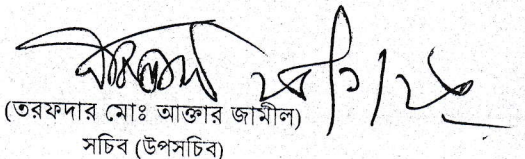 (তরফদার মোঃ আক্তার জামীল)
সচিব (উপসচিব)